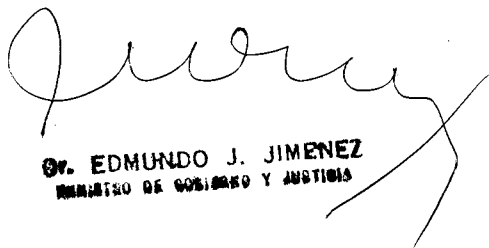 Dr. EDMUNDO J. JIMENEZ
MINISTRO DE GOBIERNO Y JUSTICIA